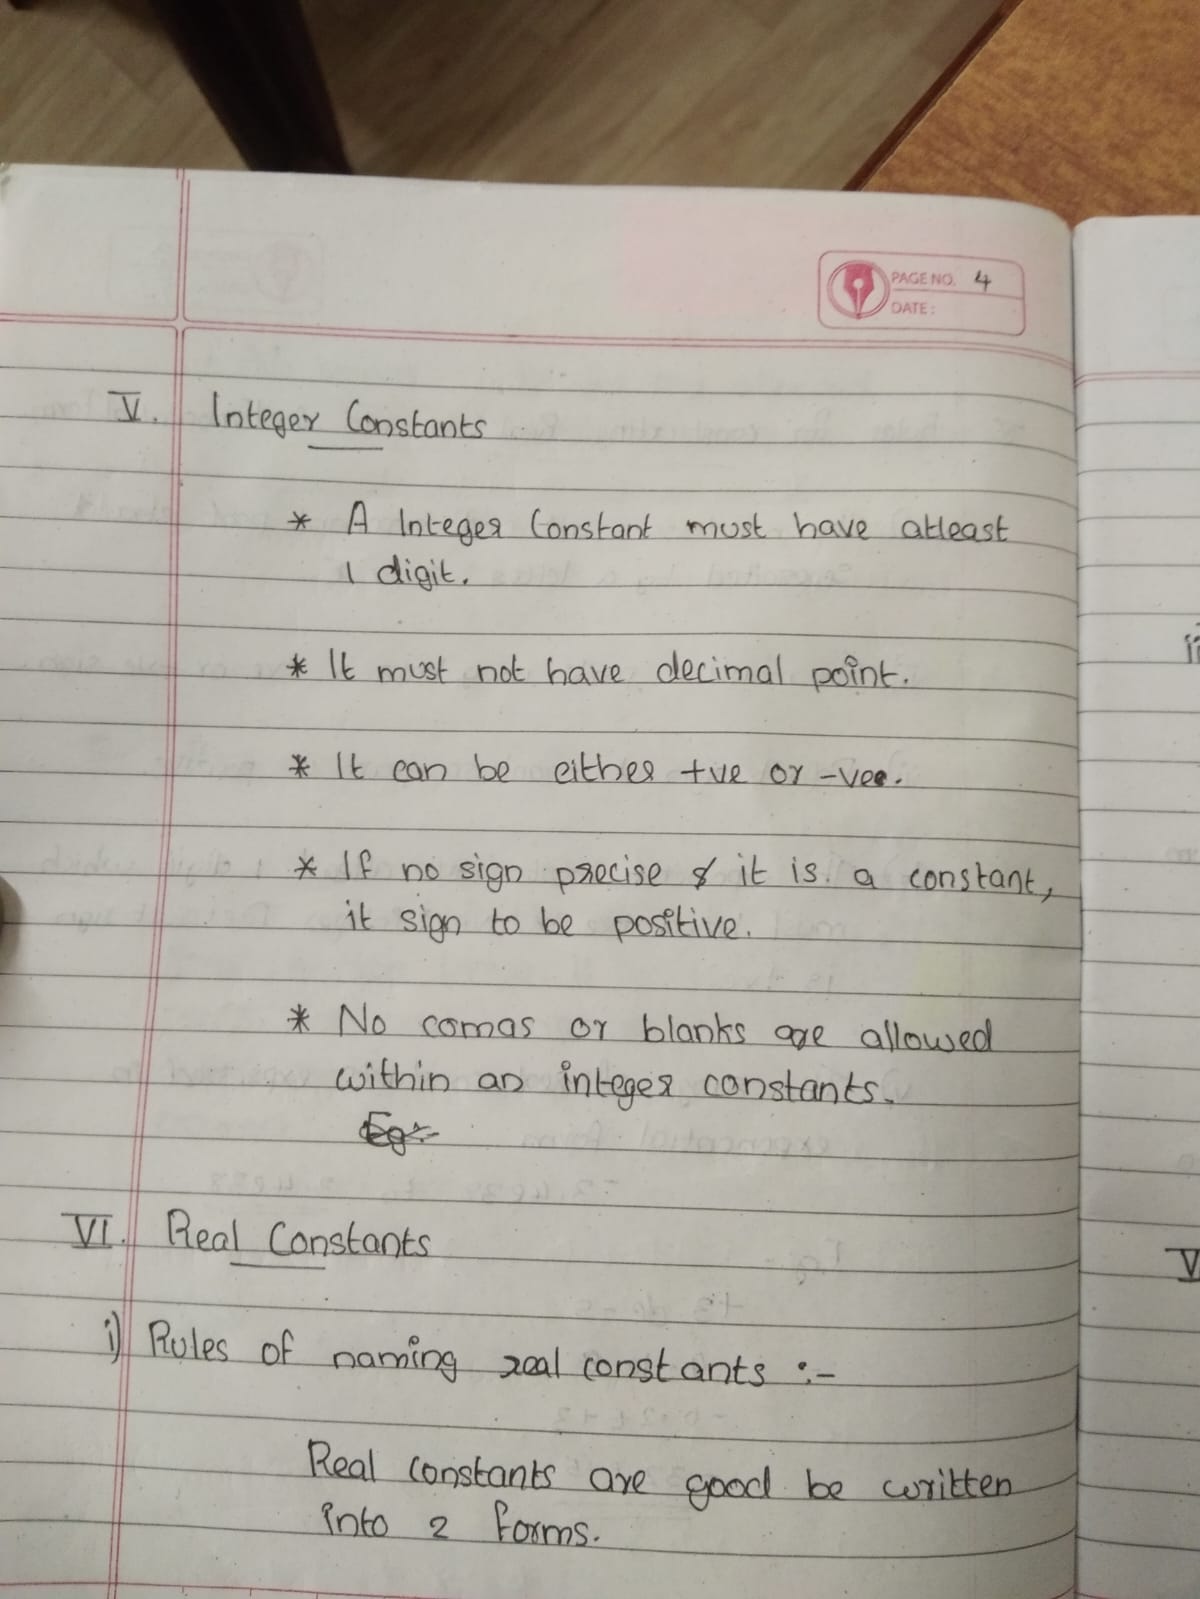 PAGE NO. 4
DATE:
V. Integer Constants
* A Integer Constant must have atleast
1 digit.
* It must not have decimal point.
* It can be either +ve or -vee.
* If no sign precise & it is a constant,
it sign to be positive.
* No comas or blanks are allowed
within an integer constants.
Eg:-
VI. Real Constants
i) Rules of naming real constants :-
Real constants are good be written
into 2 forms.
V